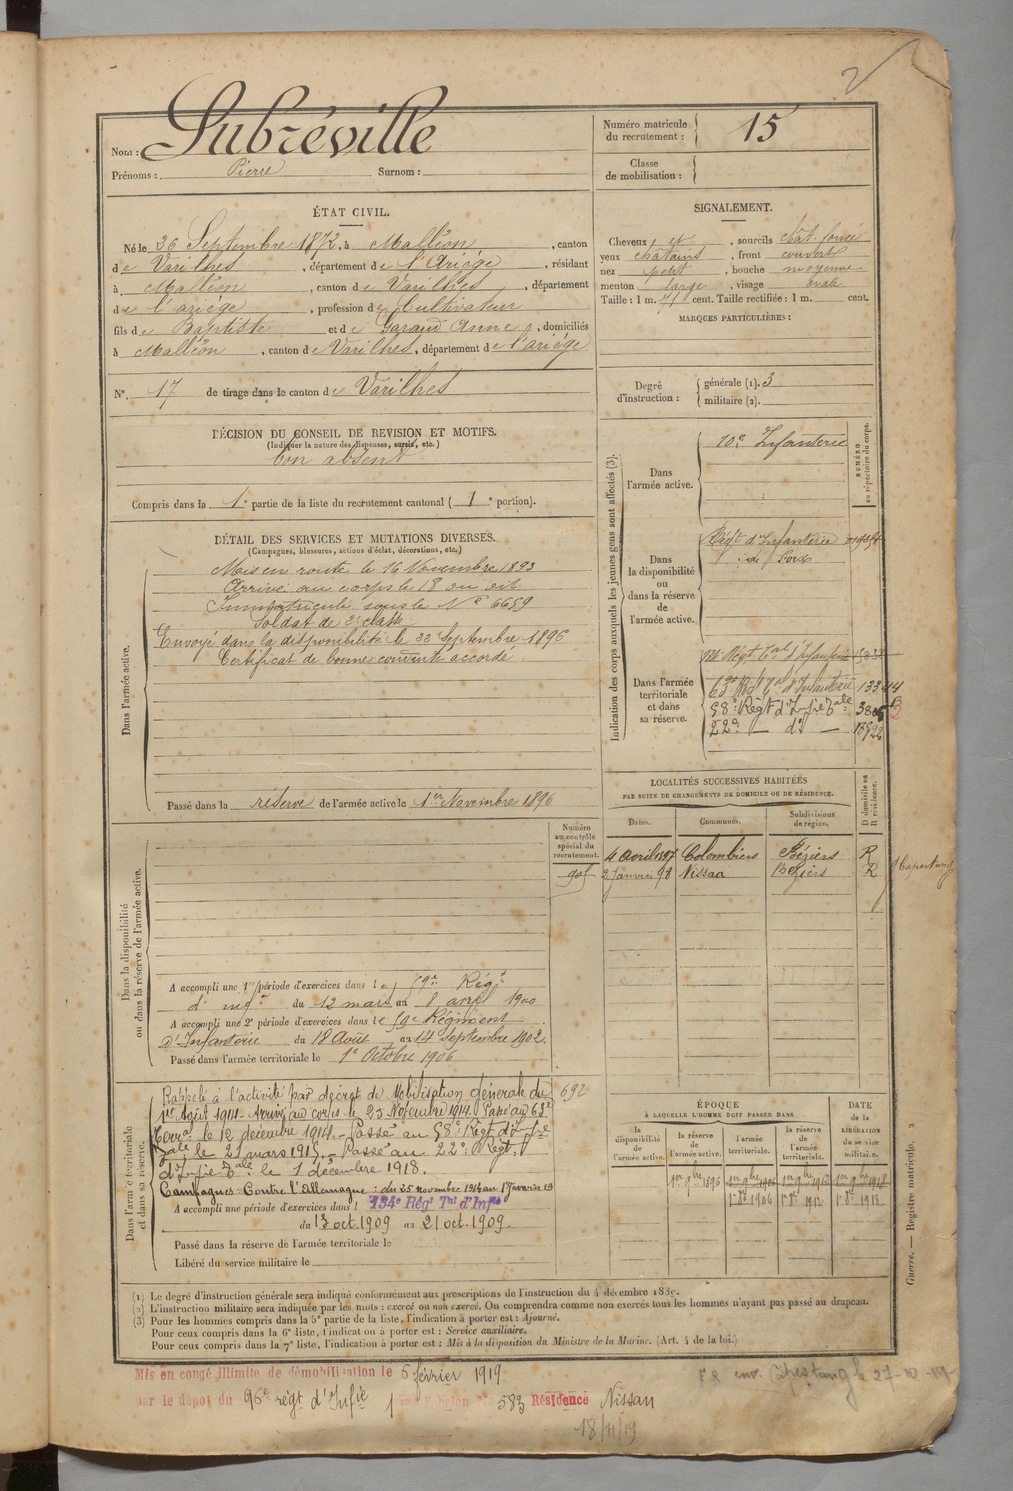 2
Nom : Subréville
Prénoms : Pierre Surnom :
Numéro matricule du recrutement : 15
Classe de mobilisation :
ÉTAT CIVIL.
Né le 26 Septembre 1872, à Malléon, canton
de Varilhes, département de l'Ariège, résidant
à Malléon, canton de Varilhes, département
de l'ariège, profession de Cultivateur
fils de Baptiste et de Garaud Anne, domiciliés
à Malléon, canton de Varilhes, département de l'ariège
N° 17 de tirage dans le canton de Varilhes
SIGNALEMENT.
Cheveux et, sourcils chât. foncé
yeux châtains, front couvert
nez petit, bouche moyenne
menton large, visage ovale
Taille : 1 m. cent. Taille rectifiée : 1 m. cent.
MARQUES PARTICULIÈRES :
Degré d'instruction : générale (1). 3
militaire (2).
DÉCISION DU CONSEIL DE REVISION ET MOTIFS.
(Indiquer la nature des dispenses, sursis, etc.)
Bon absent
Compris dans la 1e partie de la liste du recrutement cantonal (1e portion).
DÉTAIL DES SERVICES ET MUTATIONS DIVERSES.
(Campagnes, blessures, actions d'éclat, décorations, etc.)
Dans l'armée active.
Mis en route le 16 Novembre 1893
Arrivé au corps le 18 du dit
Immatriculé sous le N° 6659
Soldat de 2e classe
Envoyé dans la disponibilité le 22 Septembre 1896
Certificat de bonne conduite accordé
Passé dans la réserve de l'armée active le 1er Novembre 1896
Indication des corps auxquels les jeunes gens sont affectés (3).
NUMÉRO au répertoire du corps.
Dans l'armée active.
Infanterie
Dans la disponibilité ou dans la réserve de l'armée active.
Régt d'Infanterie
de Foix
Dans l'armée territoriale et dans sa réserve.
Régt Tal d'Infanterie
63e Rgt Tal d'Infanterie 13344
58e Régt d'Infie Tale
22e — do —
LOCALITÉS SUCCESSIVES HABITÉES
PAR SUITE DE CHANGEMENTS DE DOMICILE OU DE RÉSIDENCE.
Dates. Communes. Subdivisions de région. D domicile ou R résidence.
4 avril 1897 Colombiers Béziers R
2 Janvier 98 Nissan Béziers R Capestang
Numéro au contrôle spécial du recrutement.
905
Dans la disponibilité ou dans la réserve de l'armée active.
A accompli une 1re période d'exercices dans le 59e Régt
d'infie du 12 mars au 8 avril 1900
A accompli une 2e période d'exercices dans le 59e Régiment
d'Infanterie du 18 Août au 14 Septembre 1902.
Passé dans l'armée territoriale le 1er Octobre 1906
Dans l'armée territoriale et dans sa réserve.
Rappelé à l'activité par décret de Mobilisation générale du 692
1er Août 1914. Arrivé au corps le 25 Novembre 1914. Passé au 63e
Terral le 12 décembre 1914. Passé au 58e Régt d'Infie
Tale le 21 mars 1915. Passé au 22e Régt
d'Infie Tale le 1 décembre 1918.
Campagnes : Contre l'Allemagne : du 25 novembre 1914 au Janvier 19
A accompli une période d'exercices dans l 134e Régt Tal d'Infie
du 13 oct. 1909 au 21 oct. 1909.
Passé dans la réserve de l'armée territoriale le
Libéré du service militaire le
ÉPOQUE
À LAQUELLE L'HOMME DOIT PASSER DANS
la disponibilité de l'armée active. la réserve de l'armée active. l'armée territoriale. la réserve de l'armée territoriale. DATE de la LIBÉRATION du service militaire.
1er 9bre 1896 1er 9bre 1906 1er 9bre 1912 1er 9bre 1918
1er 8bre 1906 1er 8bre 1912 1er 8bre 1918
Guerre. — Registre matricule. 2
(1) Le degré d'instruction générale sera indiqué conformément aux prescriptions de l'instruction du 4 décembre 1889.
(2) L'instruction militaire sera indiquée par les mots : exercé ou non exercé. On comprendra comme non exercés tous les hommes n'ayant pas passé au drapeau.
(3) Pour les hommes compris dans la 5e partie de la liste, l'indication à porter est : Ajourné.
Pour ceux compris dans la 6e liste, l'indication à porter est : Service auxiliaire.
Pour ceux compris dans la 7e liste, l'indication à porter est : Mis à la disposition du Ministre de la Marine. (Art. 4 de la loi.)
Mis en congé illimité de démobilisation le 5 février 1919
par le dépôt du 96e régt d'Infie 583 Résidence Nissan
18/11/19
env. Capestang le 27-10-19